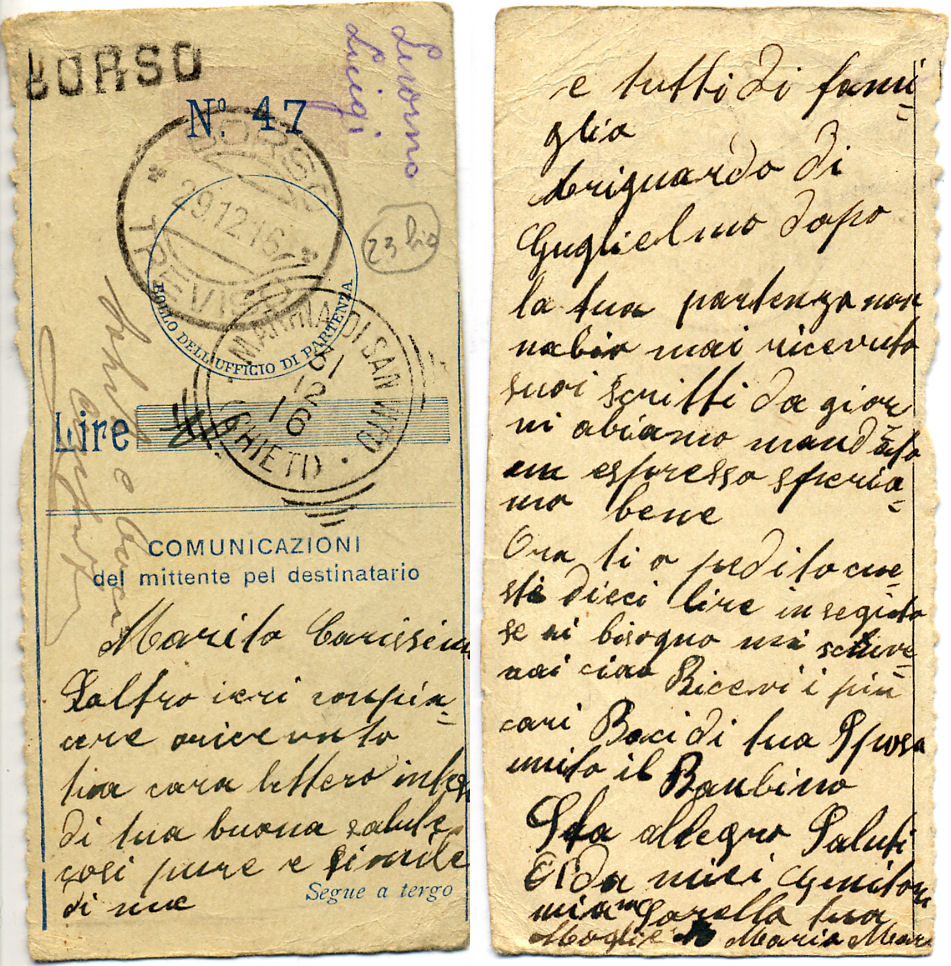 BORSO
Livorno
Luigi
Nº 47
BORSO
29.12.16
TREVISO
23 bis
BOLLO DELL'UFFICIO DI PARTENZA
MARINA DI SAN
31
12
16
(CHIETI)
Lire
COMUNICAZIONI
del mittente pel destinatario
Marito Carissimo
Laltro ieri conpia=
cere oricevuto
tua cara lettera
di tua buona salute
cosi pure e simile
di me
Segue a tergo
e tutti di fami=
glia
briguardo di
Guglielmo dopo
la tua partenza non
nabio mai ricevuto
suoi scritti da gior
ni abiamo mandato
un espresso speria=
mo bene
Ora ti o spedito cue=
ste dieci lire in seguito
se ai bisogno mi scrive=
rai ciao Ricevi i piu
cari Baci di tua Sposa
unito il Banbino
Sta allegro Saluti
Da miei Genitori
mia Sorella tua
Moglie Maria